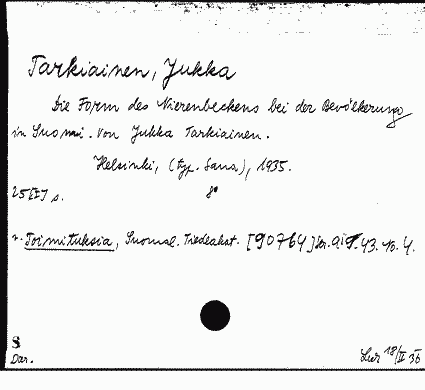 Tarkiainen, Jukka
Die Form des Nierenbeckens bei der Bevölkerung
in Suomi. von Jukka Tarkiainen.
Helsinki, (typ. Sana), 1935.
25 s. 8°
Toimituksia, Suomal. Tiedeakat. [90764] Ser. A. 43. No. 4.
8
Dar. 18/II 36